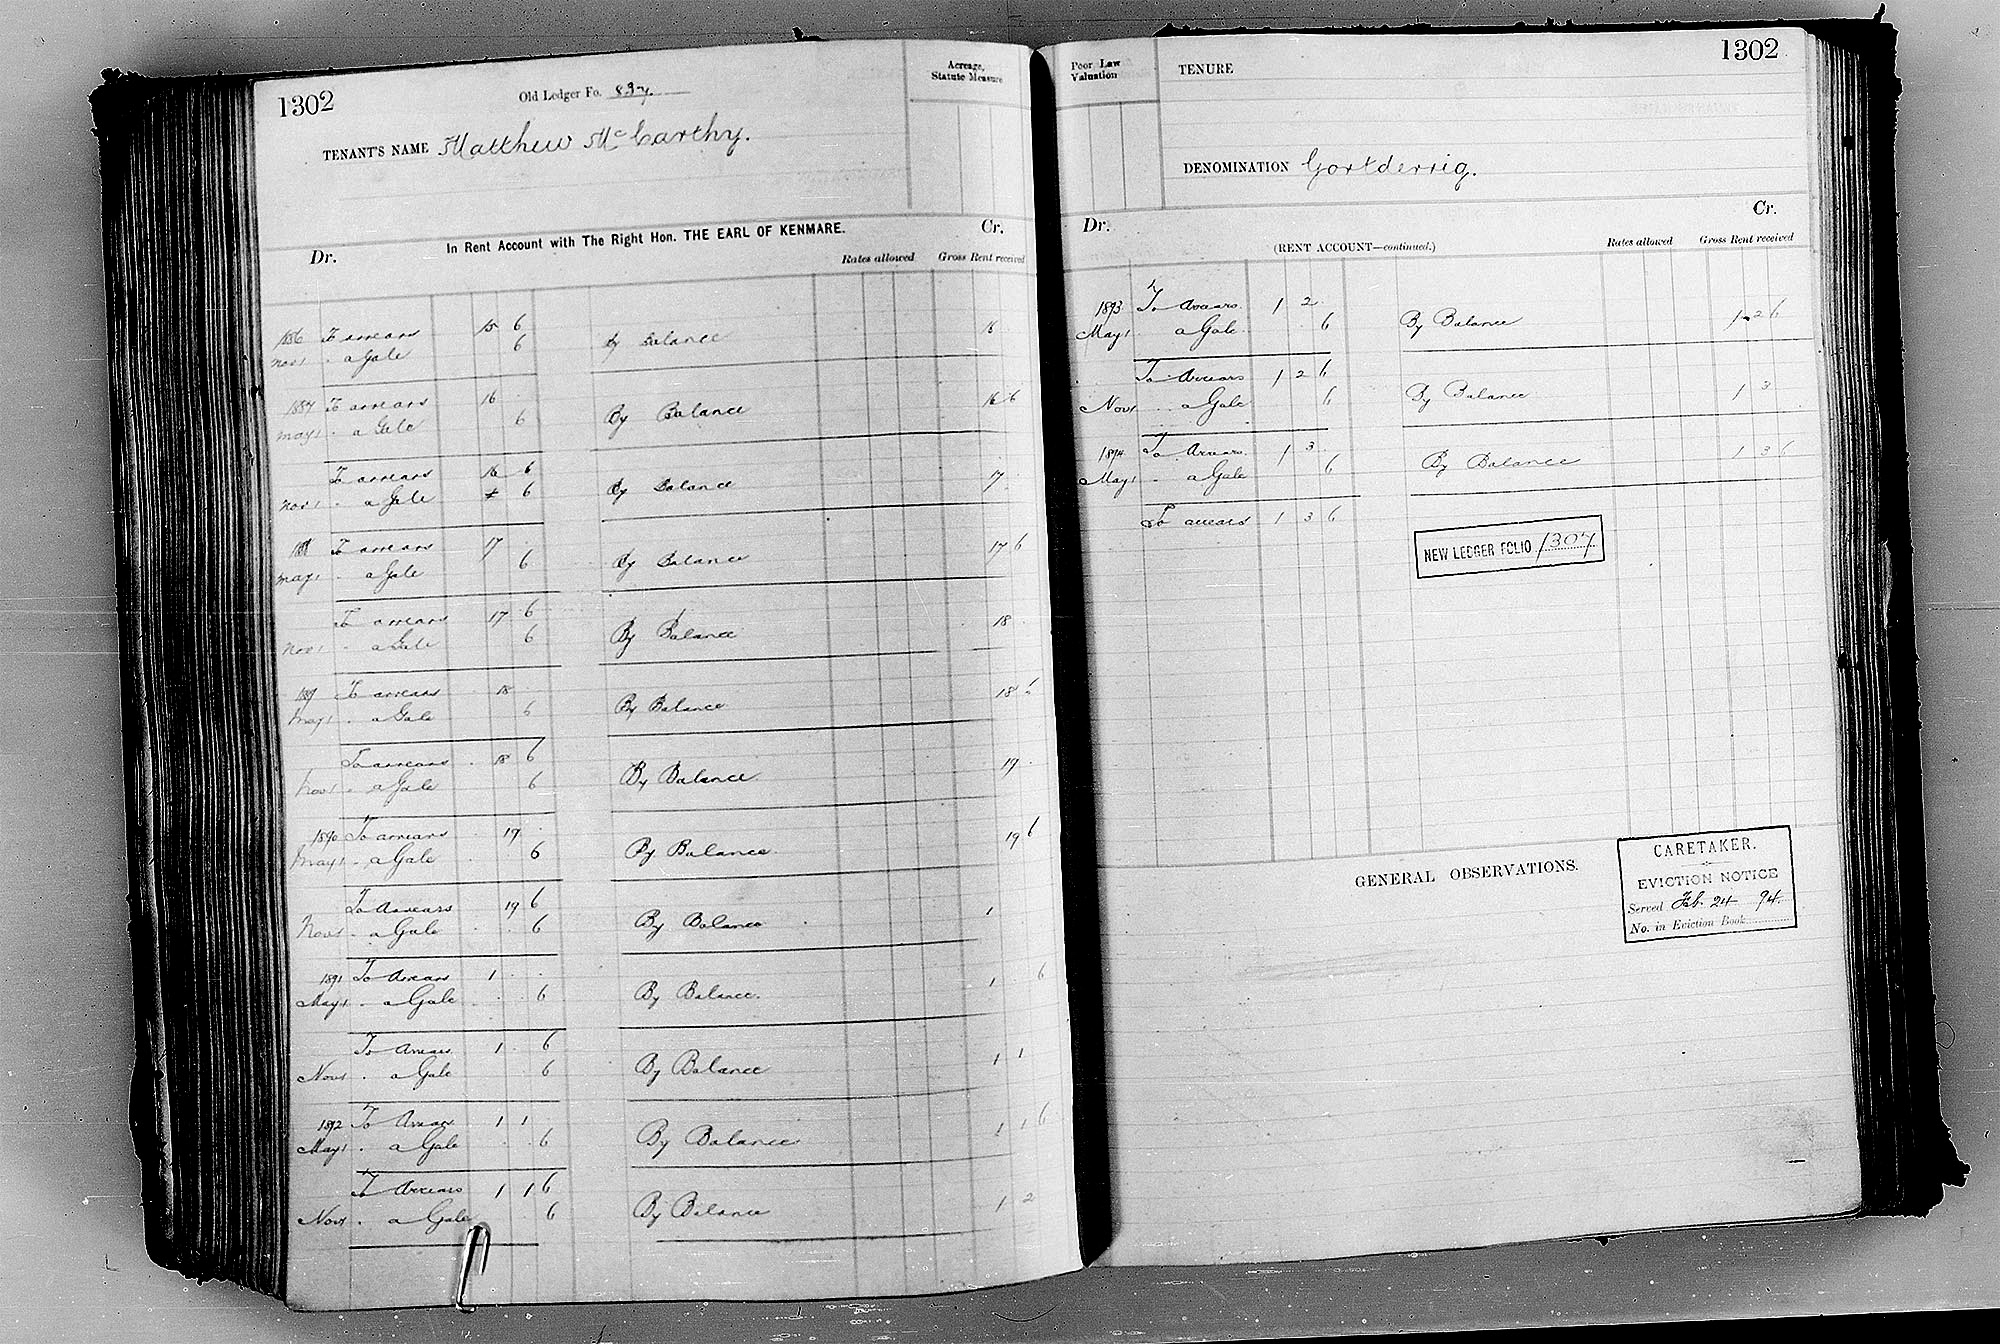 1302
Old Ledger Fo. 837.
Acreage,
Statute Measure
TENANT'S NAME Matthew McCarthy.
In Rent Account with The Right Hon. THE EARL OF KENMARE.
Dr. Cr.
Rates allowed Gross Rent received
1886 To arrears 15 6
Nov 1 . a Gale 6 By Balance 16
1887 To arrears 16
May 1 . a Gale 6 By Balance 16 6
To arrears 16 6
Nov 1 . a Gale 6 By Balance 17
1888 To arrears 17
May 1 . a Gale 6 By Balance 17 6
To arrears 17 6
Nov 1 . a Gale 6 By Balance 18
1889 To arrears 18
May 1 . a Gale 6 By Balance 18 6
To arrears 18 6
Nov 1 . a Gale 6 By Balance 19
1890 To arrears 19
May 1 . a Gale 6 By Balance 19 6
To Arrears 19 6
Nov 1 . a Gale 6 By Balance 1
1891 To Arrears 1
May 1 . a Gale 6 By Balance. 1 . 6
To Arrears 1 . 6
Nov 1 . a Gale 6 By Balance 1 1
1892 To Arrears 1 1
May 1 . a Gale 6 By Balance 1 1 6
To Arrears 1 1 6
Nov 1 . a Gale 6 By Balance 1 2
1302
Poor Law
Valuation
TENURE
DENOMINATION Gortderrig.
Dr. Cr.
(RENT ACCOUNT—continued.)
Rates allowed Gross Rent received
1893 To Arrears 1 2
May 1 a Gale 6 By Balance 1 2 6
To Arrears 1 2 6
Nov 1 . . a Gale 6 By Balance 1 3
1894 To Arrears 1 3
May 1 . a Gale 6 By Balance 1 3 6
To arrears 1 3 6
NEW LEDGER FOLIO 1307
GENERAL OBSERVATIONS.
CARETAKER.
EVICTION NOTICE
Served Feb. 24 94.
No. in Eviction Book